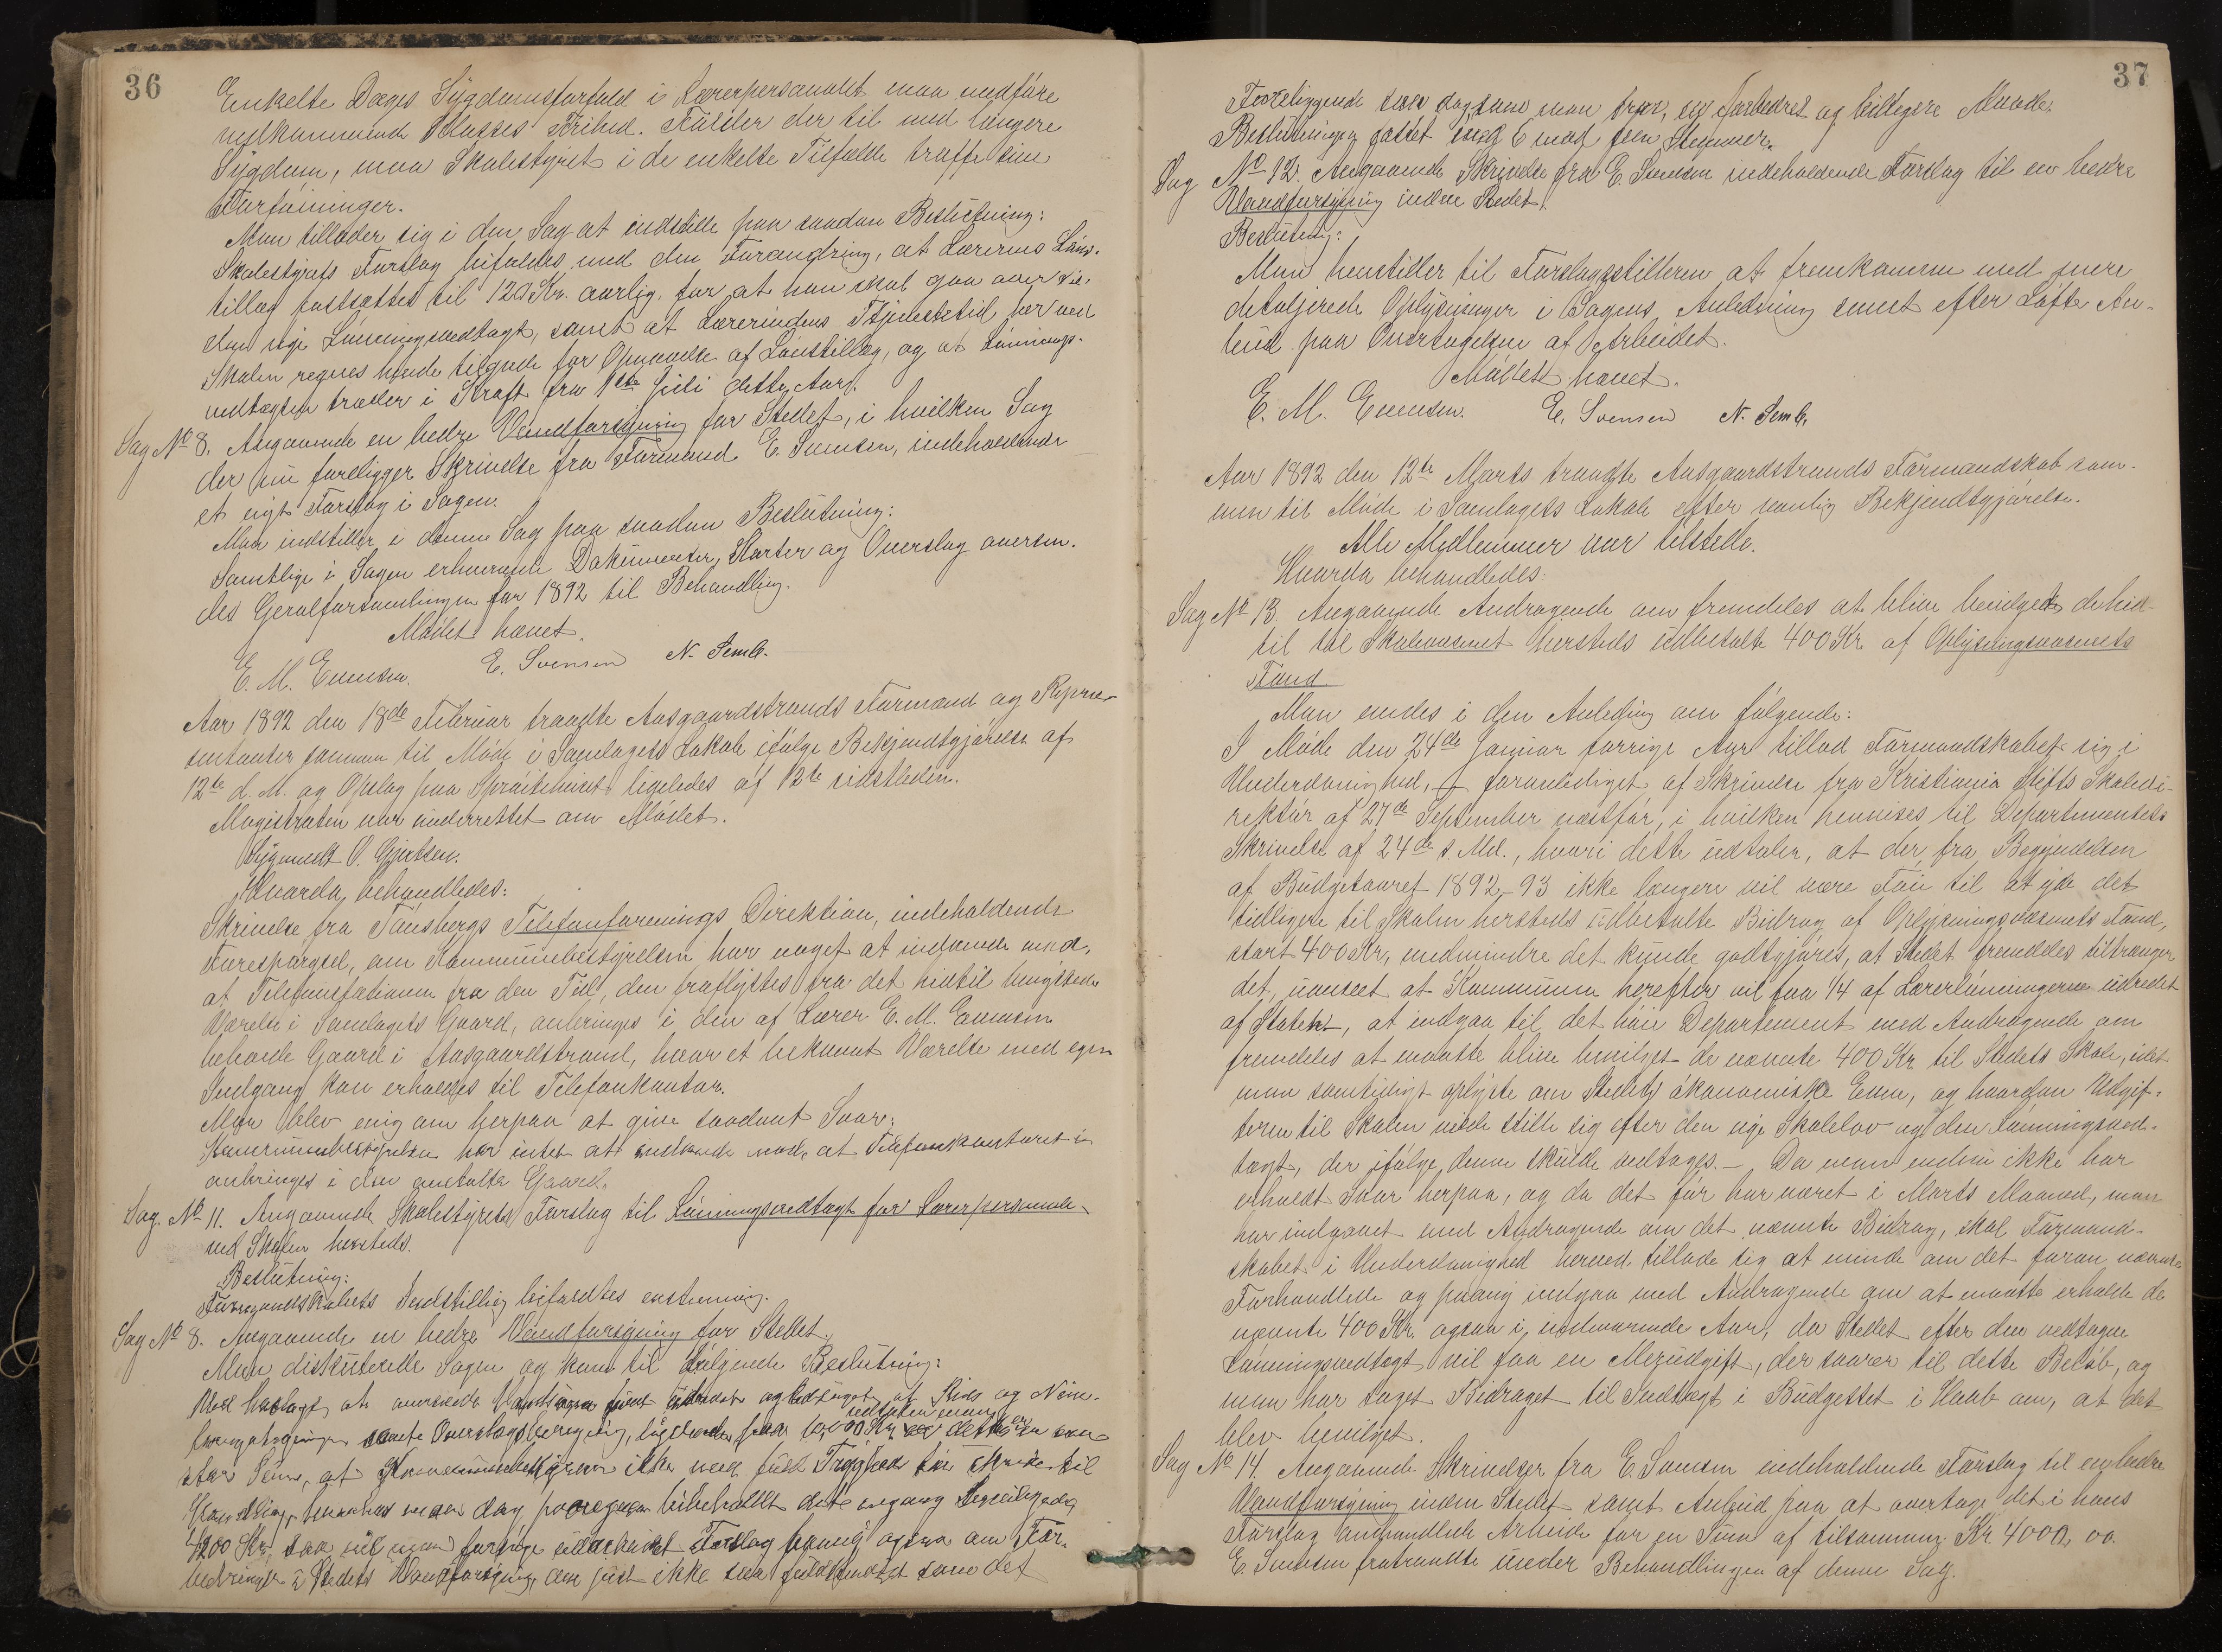 36
Enkelte Dages Sygdomsforfald i Lærerpersonalet maa medføre
vedkommende Klasses Frihed. Falder der til med længere
Sygdom, maa Skolestyret i de enkelte Tilfælde træffe sine
Forføininger.
Man tillader sig i den Sag at indstille paa saadan Beslutning:
Skolestyrets Forslag bifaldes med den Forandring, at Lærerens Løns-
tillæg fastsættes til 120 Kr. aarlig, for at han skal gaa over
den nye Lønningsvedtægt, samt at Lærerindens Tjenestetid her ved
Skolen regnes hende tilgode for Opnaaelse af Lønstillæg, og at Lønnings-
vedtægten træder i Kraft fra 1ste Juli dette Aar.
Sag No 8. Angaaende en bedre Vandforsyning for Stedet, i hvilken Sag
der nu foreligger Skrivelse fra Formand E. Svensen, indeholdende
et nyt Forslag i Sagen.
Man indstiller i denne Sag paa saadan Beslutning:
Samtlige i Sagen erhvervede Dokumenter, Karter og Overslag oversen-
des Geralforsamlingen for 1892 til Behandling.
Mødet hævet.
E. M. Evensen. E. Svensen N. Semb.
Aar 1892 den 18de Februar traadte Aasgaardstrands Formænd og Repræ-
sentanter sammen til Møde i Samlagets Lokale ifølge Bekjendtgjørelse af
12te d. M. og Opslag paa Sprøitehuset ligeledes af 12te sidstleden.
Magistraten var underrettet om Mødet.
Sygmeldt O. Gjertsen.
Hvorda behandledes:
Skrivelse fra Tønsbergs Telefonforenings Direktion, indeholdende
Forespørgsel, om Kommunebestyrelsen har noget at indvende mod,
at Telefonstationen fra den Tid, den fraflyttes fra det hidtil benyttede
Værelse i Samlagets Gaard, anbringes i den af Lærer E. M. Evensen
beboede Gaard i Aasgaardstrand, hvor et bekvemt Værelse med egen
Indgang kan erholdes til Telefonkontor.
Man blev enig om herpaa at give saadant Svar:
Kommunebestyrelsen har intet at indvende mod, at Telefonkontoret
anbringes i den omtalte Gaard.
Sag. No 11. Angaaende Skolestyrets Forslag til Lønningsvedtægt for Lærerpersonale
ved Skolen hersteds.
Beslutning:
Formandskabets Indstilling bifaldtes enstemmig.
Sag No 8. Angaaende en bedre Vandforsyning for Stedet.
Man diskuterede Sagen og kom til følgende Beslutning:
Med Hensyn at
samt Overslagsberegning, lydende paa 10,000 Kr. dette
udtaler man
at Kommunebestyrelsen ikke med fuld Tryghed kan skride til
dog
1200 Kr. Forslag ogsaa om For-
bedringer i Stedets Vandforsyning, om just ikke saa fuldkomment som det
37
Foreliggende saa dog, som man tror, en forbedret og billigere Maade.
Beslutningen fattet med 6 mod fem Stemmer.
Sag No 12. Angaaende Skrivelse fra E. Svensen indeholdende Forslag til en bedre
Vandforsyning inden Stedet.
Beslutning:
Man henstiller til Forslagsstilleren at fremkomme med mere
detaljerede Oplysninger i Sagens Anledning samt efter Løfte An-
bud paa Overtagelsen af Arbeidet.
Mødet hævet.
E. M. Evensen. E. Svensen N. Semb.
Aar 1892 den 12te Marts traadte Aasgaardstrands Formandskab sam-
men til Møde i Samlagets Lokale efter vanlig Bekjendtgjørelse.
Alle Medlemmer var tilstede.
Hvorda behandledes:
Sag No 13. Angaaende Andragende om fremdeles at blive bevilget de hid-
til til Skolevæsenet hersteds udbetalte 400 Kr. af Oplysningsvæsenets
Fond
Man endes i den Anledning om følgende:
I Møde den 24de Januar forrige Aar tillod Formandskabet sig i
Underdanighed, foranlediget af Skrivelse fra Kristiania Stifts Skoledi-
rektør af 27de September næstfør, i hvilken henvises til Departementets
Skrivelse af 24de s. Md., hvori dette udtaler, at der fra Begyndelsen
af Budgetaaret 1892-93 ikke længere vil være Føie til at yde det
tidligere til Skolen hersteds udbetalte Bidrag af Oplysningsvæsenets Fond,
stort 400 Kr, medmindre det kunde godtgjøres, at Stedet fremdeles tiltrænger
det, uanseet at Kommunen herefter vil faa 1/4 af Lærerlønningerne udredet
af Staten, at indgaa til det høie Departement med Andragende om
fremdeles at maatte blive bevilget de nævnte 400 Kr. til Stedets Skole, idet
man samtidigt oplyste om Stedets økonomiske Evne, og hvordan Udgif-
terne til Skolen vilde stille sig efter den nye Skolelov og den Lønningsved-
tægt, der ifølge denne skulde vedtages. – Da man endnu ikke har
erholdt Svar herpaa, og da det før har været i Marts Maaned, man
har indgaaet med Andragende om det nævnte Bidrag, skal Formand-
skabet i Underdanighed herved tillade sig at minde om det foran nævnte
Forhandlede og paany indgaa med Andragende om at maatte erholde de
nævnte 400 Kr. ogsaa i indeværende Aar, da Stedet efter den vedtagne
Lønningsvedtægt vil faa en Merudgift, der svarer til dette Beløb, og
man har taget Bidraget til Indtægt i Budgettet i Haab om, at det
blev bevilget.
Sag No 14. Angaaende Skrivelser fra E. Svensen indeholdende Forslag til en bedre
Vandforsyning inden Stedet samt Anbud paa at overtage det i hans
Forslag omhandlede Arbeide for en Sum af tilsammen Kr. 4000,00.
E. Svensen fratraadte under Behandlingen af denne Sag.